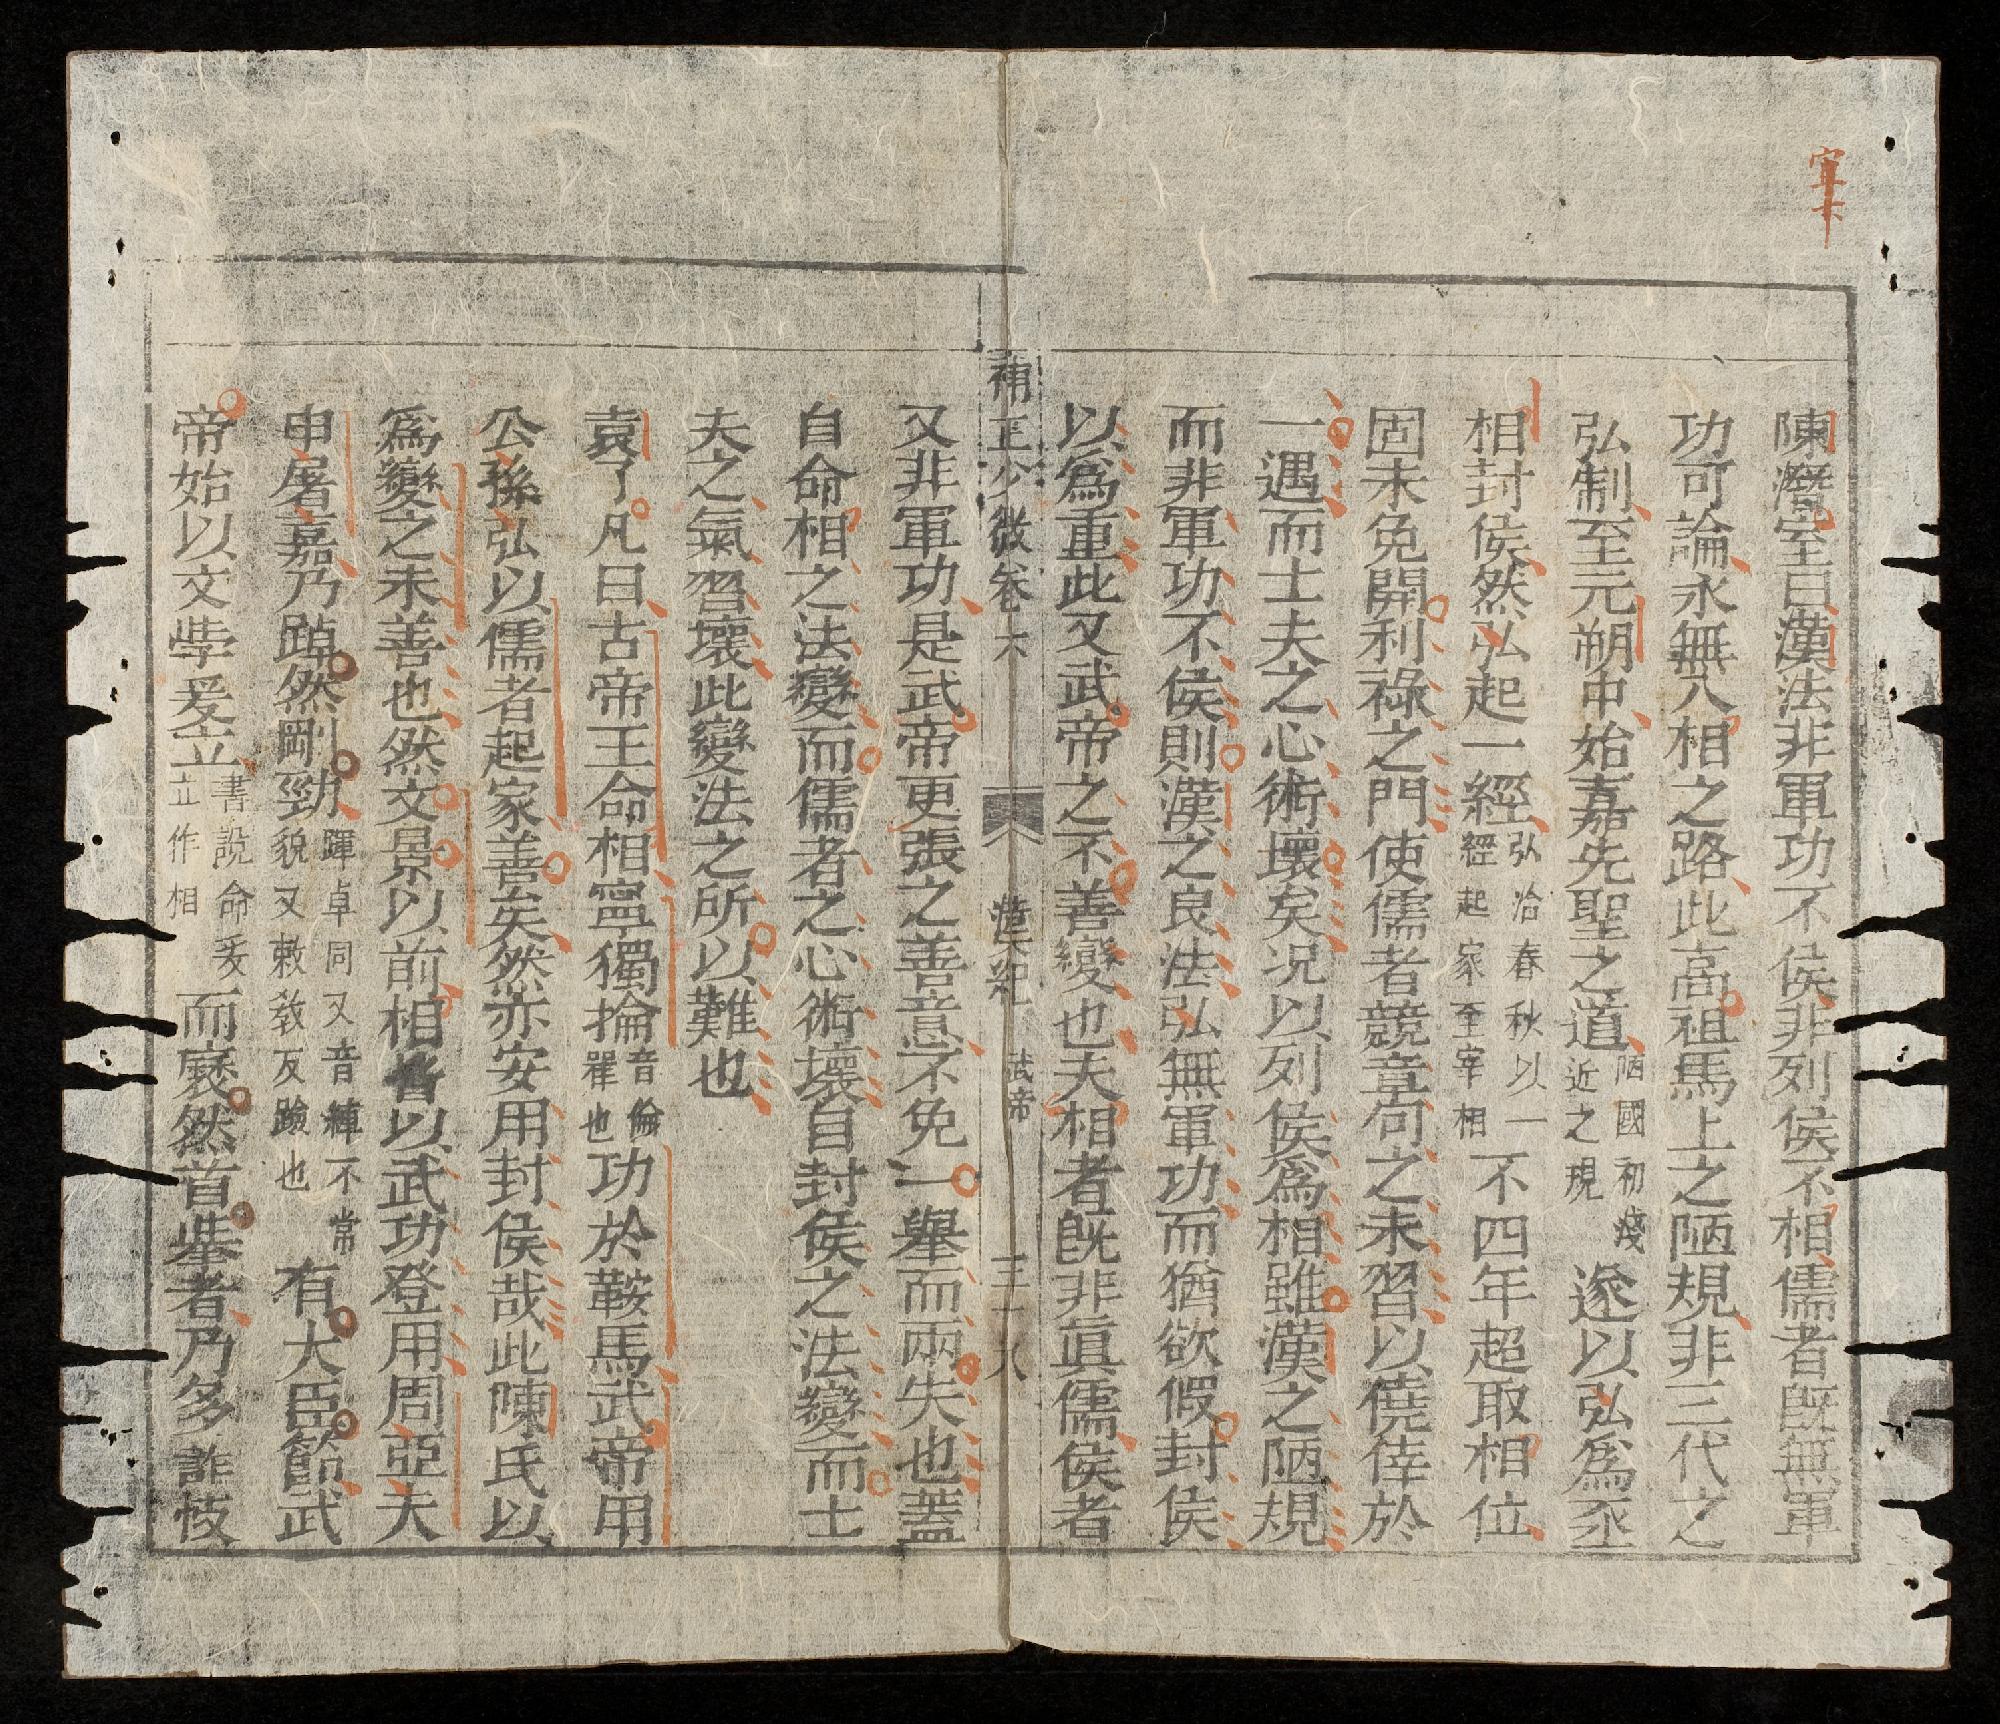 陳潛室曰漢法非軍功不侯非列侯不相儒者旣無軍
功可論永無入相之路此高祖馬上之陋規非三代之
弘制至元朔中始嘉先聖之道陋國初淺近之規遂以弘爲丞
相封侯然弘起一經弘治春秋以一經起家至宰相不四年超取相位
固未免開利祿之門使儒者競章句之末習以僥倖於
一遇而士夫之心術壞矣况以列侯爲相雖漢之陋規
而非軍功不侯則漢之良法弘無軍功而猶欲假封侯
以爲重此又武帝之不善變也夫相者旣非眞儒侯者
補正少微卷六 漢紀 武帝 三十八
又非軍功是武帝更張之善意不免一舉而兩失也蓋
自命相之法變而儒者之心術壞自封侯之法變而士
夫之氣習壞此變法之所以難也
袁了凡曰古帝王命相寧獨掄音倫擇也功於鞍馬武帝用
公孫弘以儒者起家善矣然亦安用封侯哉此陳氏以
爲變之未善也然文景以前相皆以武功登用周亞夫
申屠嘉乃踔然剛勁踔卓同又音綽不常貌又敕敎反踰也有大臣節武
帝始以文學爰立書說命爰立作相而襃然首舉者乃多詐忮